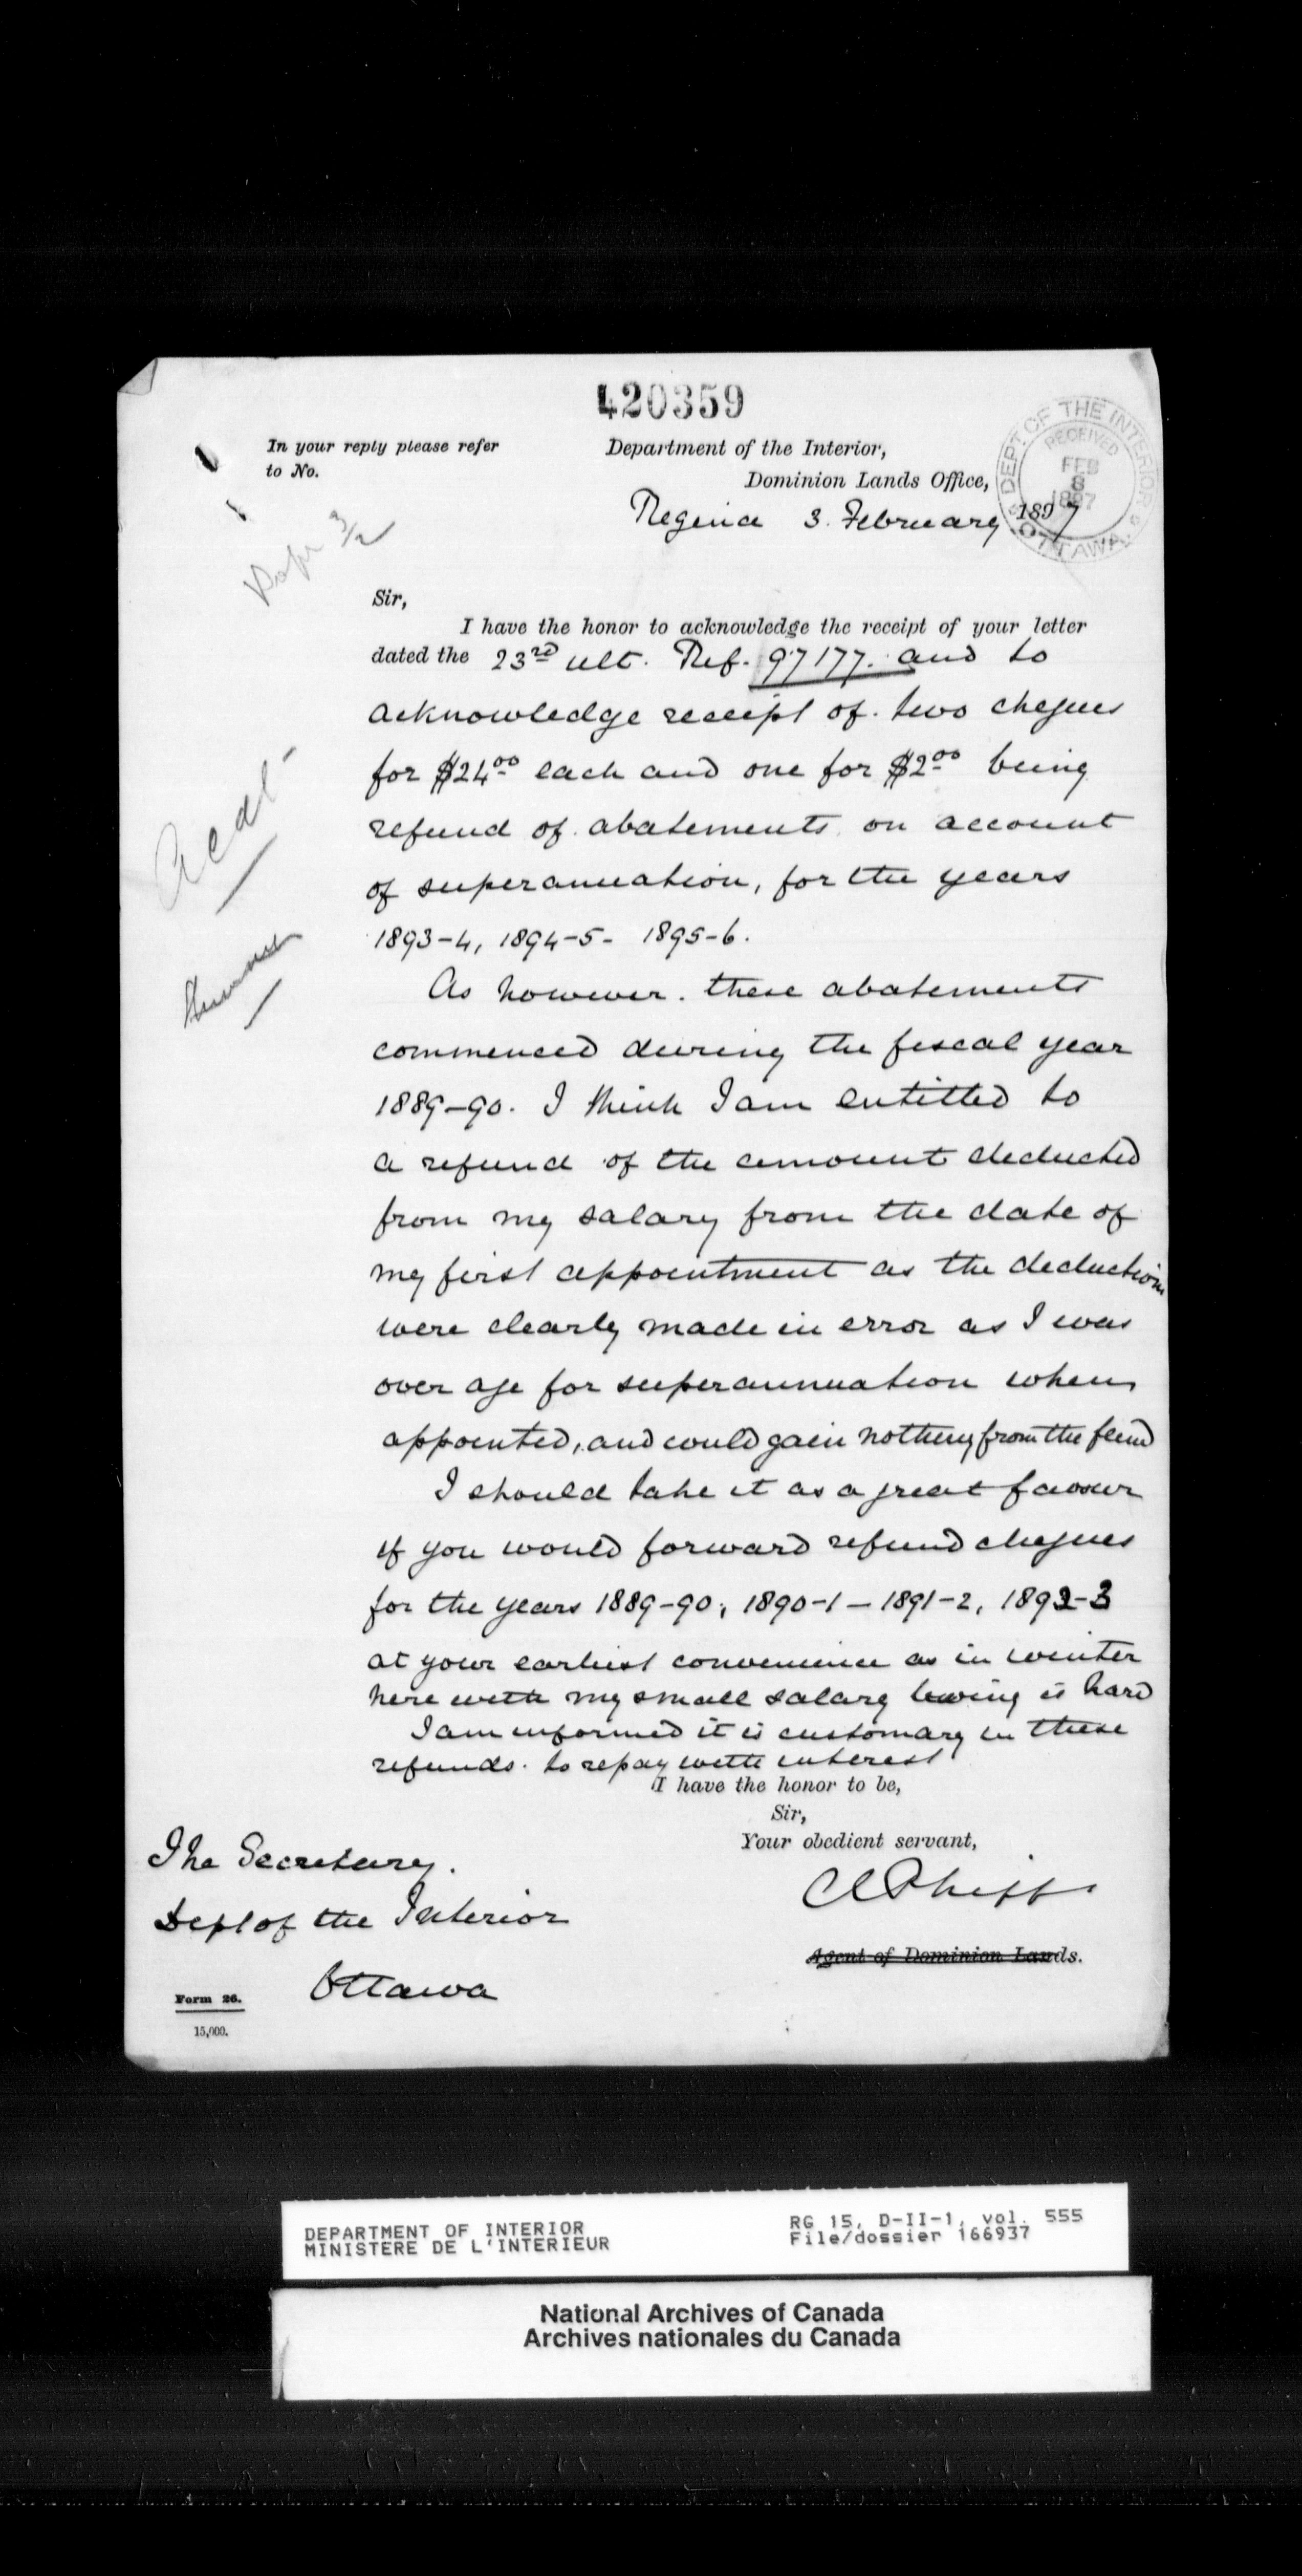 420359
In your reply please refer
to No.
Department of the Interior,
Dominion Lands Office,
DEPT. OF THE INTERIOR
RECEIVED
FEB
8
1897
OTTAWA
Regina 3. February 1897
Sir,
I have the honor to acknowledge the receipt of your letter
dated the 23rd ult. Ref. 97177. and to
acknowledge receipt of two cheques
for $24.00 each and one for $2.00 being
refund of abatements on account
of superanuation, for the years
1893-4, 1894-5- 1895-6.
As however. these abatements
commenced during the fiscal year
1889-90. I think I am entitled to
a refund of the amount deducted
from my salary from the date of
my first appointment as the deductions
were clearly made in error as I was
over age for superannuation when
appointed, and could gain nothing from the fund
I should take it as a great favour
if you would forward refund cheques
for the years 1889-90, 1890-1 - 1891-2, 1892-3
at your earliest convenience as in winter
here with my small salary living is hard
I am informed it is customary in these
refunds. to repay with interest
I have the honor to be,
Sir,
Your obedient servant,
The Secretary.
Dept of the Interior
Ottawa
Agent of Dominion Lands.
Form 26.
15,000.
DEPARTMENT OF INTERIOR
MINISTERE DE L'INTERIEUR
RG 15, D-II-1, vol. 555
File/dossier 166937
National Archives of Canada
Archives nationales du Canada